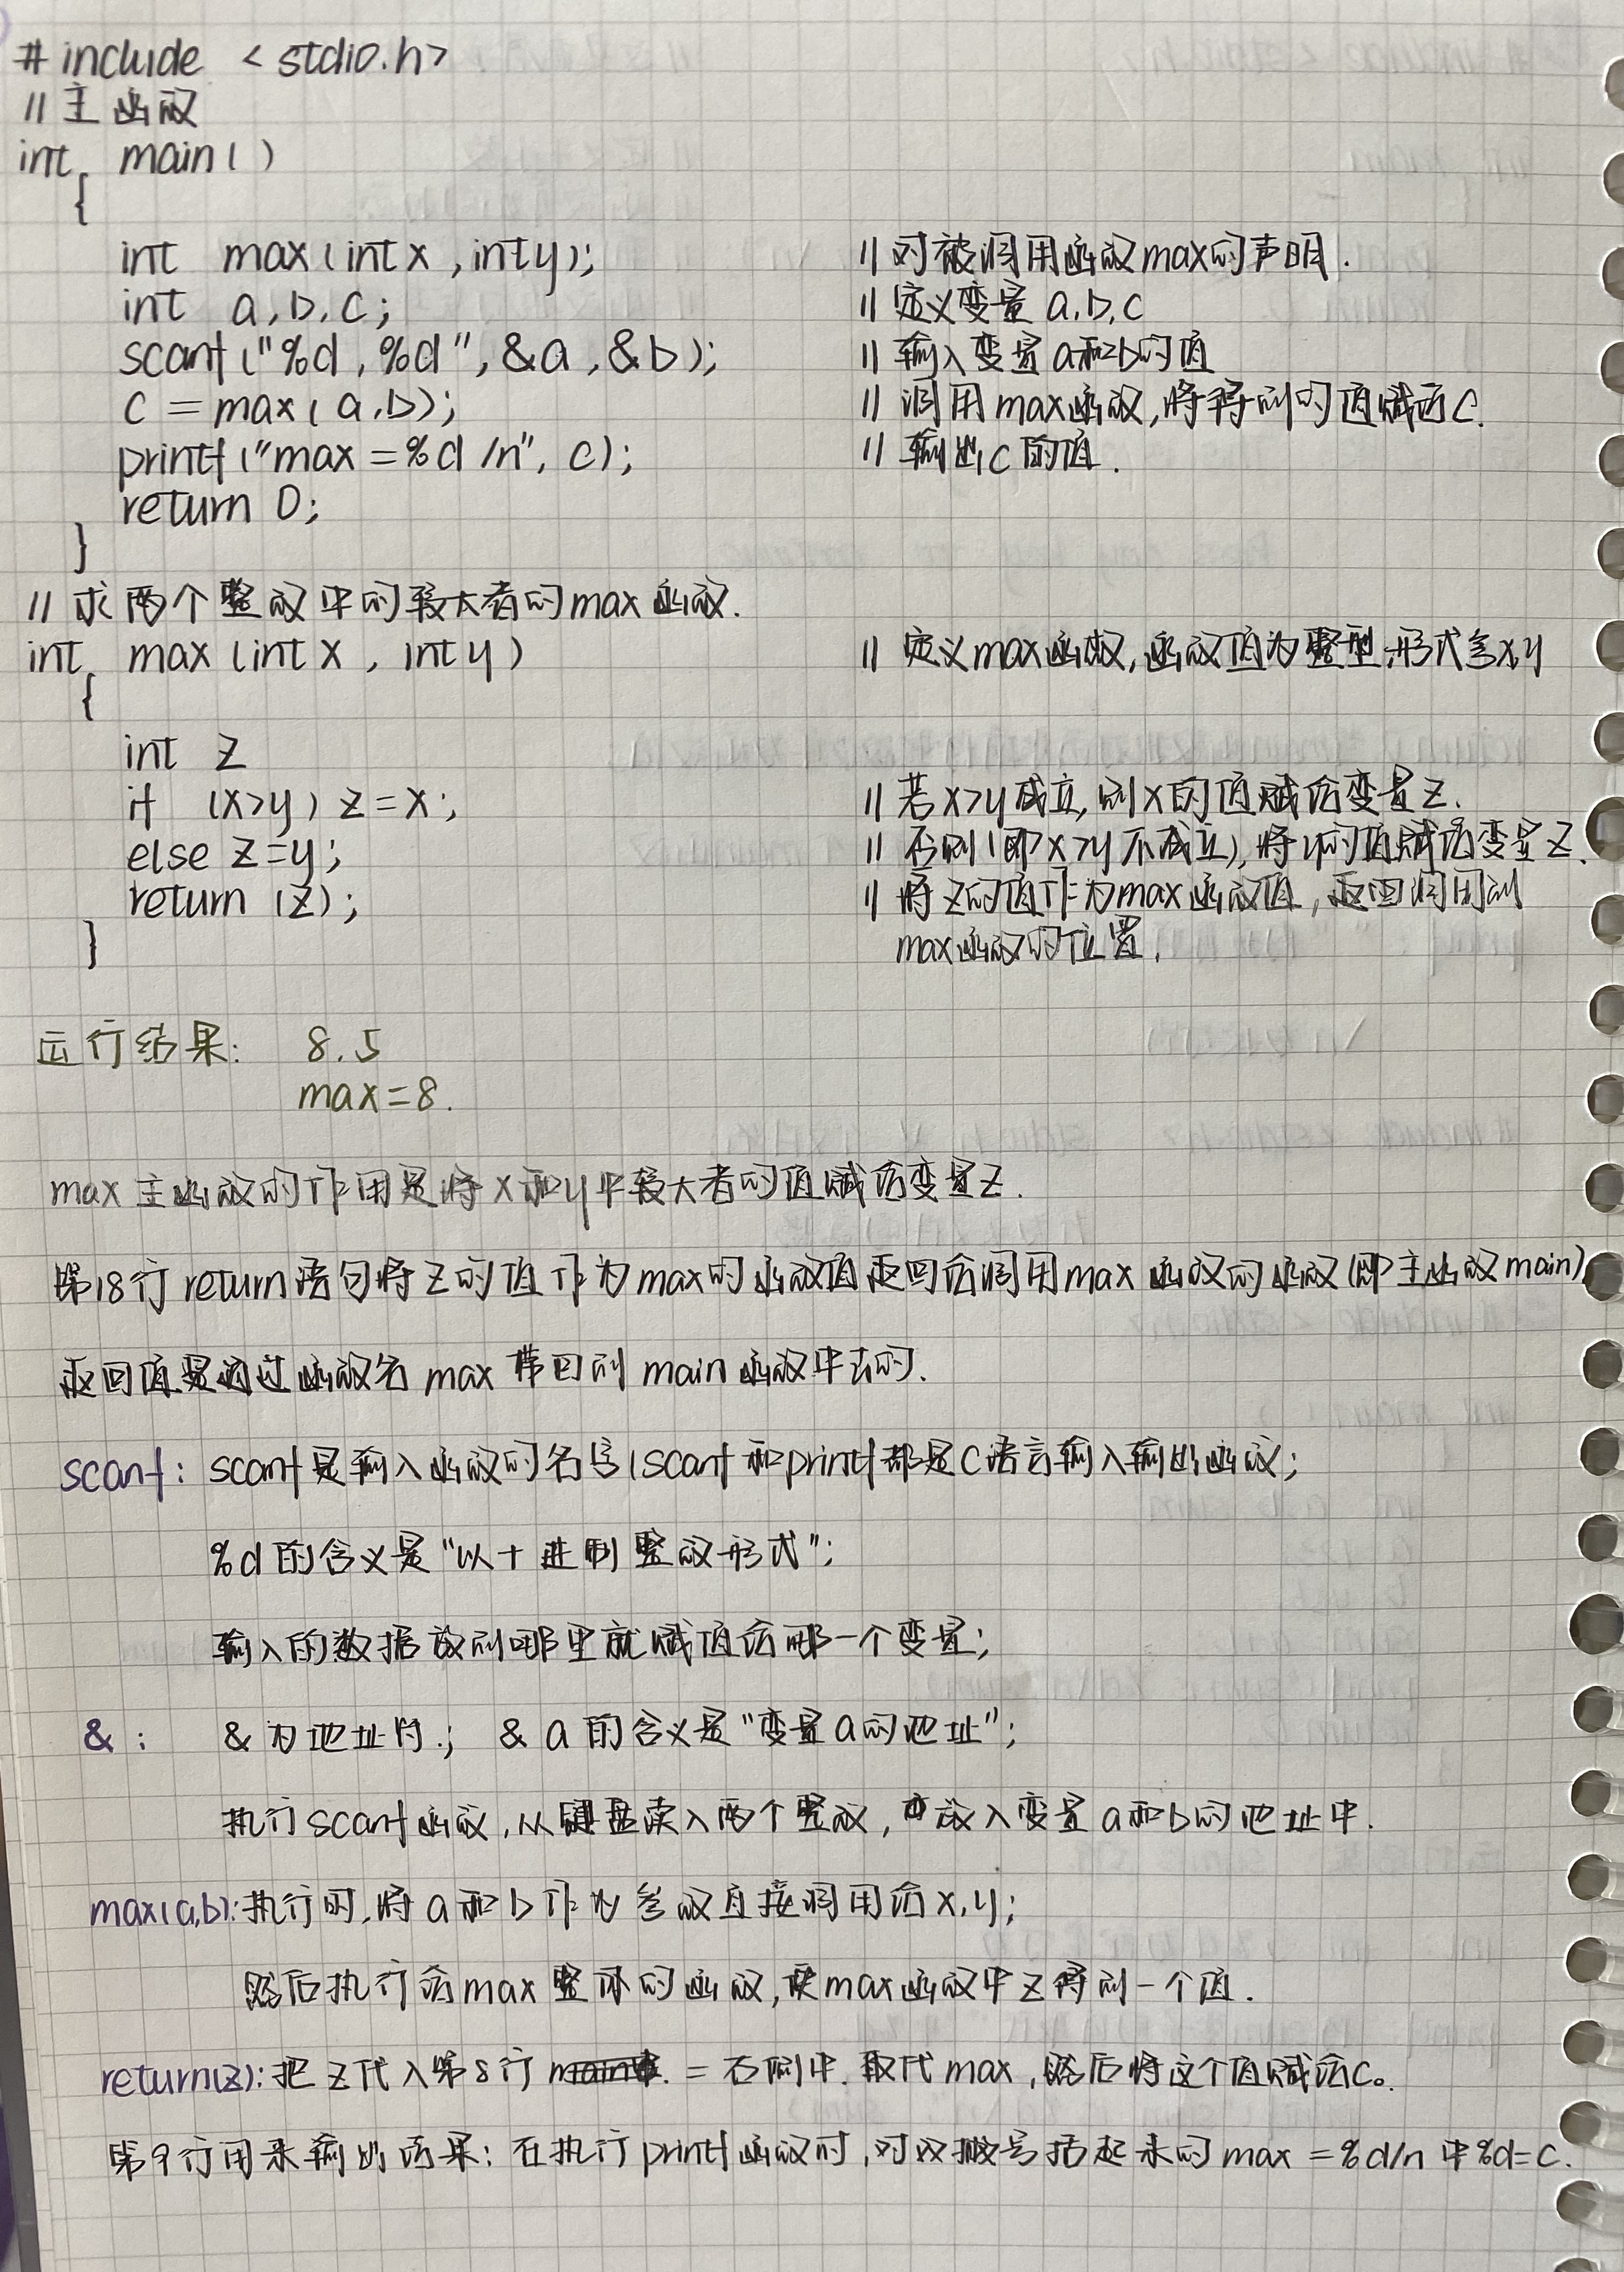 #include <stdio.h>
//主函数
int main()
{
int max(int x,int y); //对被调用函数max的声明.
int a,b,c; //定义变量a,b,c
scanf("%d,%d",&a,&b); //输入变量a和b的值
c=max(a,b); //调用max函数,将得到的值赋给c.
printf("max=%d/n",c); //输出c的值.
return 0;
}
//求两个整数中的较大者的max函数.
int max(int x, int y) //定义max函数,函数值为整型,形式参x,y
{
int z
if (x>y) z=x; //若x>y成立,则x的值赋给变量z.
else z=y; //否则(即x>y不成立),将y的值赋给变量z.
return (z); //将z的值作为max函数值,返回调用到
max函数的位置.
}
运行结果: 8.5
max=8.
max主函数的作用是将x和y中较大者的值赋给变量z.
第18行return语句将z的值作为max的函数值返回给调用max函数的函数(即主函数main).
返回值是通过函数名max带回到main函数中去的.
scanf: scanf是输入函数的名字(scanf和printf都是C语言输入输出函数;
%d的含义是"以十进制整数形式";
输入的数据放到哪里就赋值给哪一个变量;
&: &为地址符.; &a的含义是"变量a的地址";
执行scanf函数,从键盘读入两个整数,放入变量a和b的地址中.
max(a,b):执行时,将a和b作为参数直接调用给x,y;
然后执行给max整体的函数,使max函数中z得到一个值.
return(z):把z代入第8行 =右侧中.取代max,然后将这个值赋给c。
第9行用来输出结果:在执行printf函数时,对双撇号括起来的max=%d/n中%d=c.